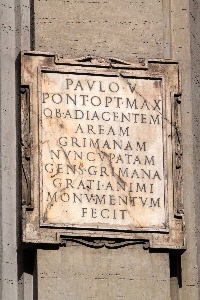 PAVLO · V
PONT · OPT · MAX
OB · ADIACENTEM
AREAM
GRIMANAM
NVNCVPATAM
GENS · GRIMANA
GRATI · ANIMI
MONVMENTVM
FECIT